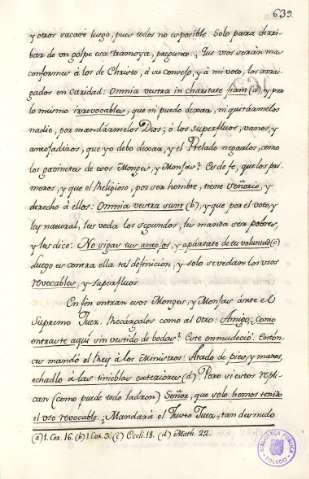 639.
y otros vacare luego, pues todos no es posible. Solo para derri-
bar de un golpe esa tramoya, pregunto: Que usos serán mas
conformes à los de Christo, à su consejo, y à mi voto, los arrai-
gados en caridad: Omnia vestra in charitate fiant (a), y por
lo mismo irrevocables, que ni puedo dexar, ni quitarmelos
nadie, por mandarmelos Dios; ò los superfluos, vanos, y
antojadizos, que yo debo dexar, y el Prelado negarlos, como
los prometen de esos Monges, y Monjas? Es de fe, que los pri-
meros, y que el Religioso, por ser hombre, tiene Señorio, y
derecho à ellos: Omnia vestra sunt (b), y que por el voto, y
ley natural, les veda los segundos, les manda ser pobres,
y les dice: No sigas tus antojos, y apártate de tu voluntad (c)
luego es contra ella tal definicion, y solo se vedan los usos
revocables, y superfluos.
En fin entran esos Monges, y Monjas ante el
Supremo Juez. Hacerles cargo como al otro: Amigo, como
entraste aqui sin vestido de bodas? Este enmudeció. Enton-
ces mandó el Rey à los Ministros: Atado de pies, y manos,
echadlo à las tinieblas exteriores (d) Pero si estos repli-
can (como puede todo ladron) Señor, que solo hemos tenido
el uso revocable: Mandará el Justo Juez, tan desnudo
(a) 1. Cor. 16. (b) 1. Cor. 3. (c) Eccli. 18. (d) Math. 22.
BIBLIOTECA PUBLICA
TOLEDO